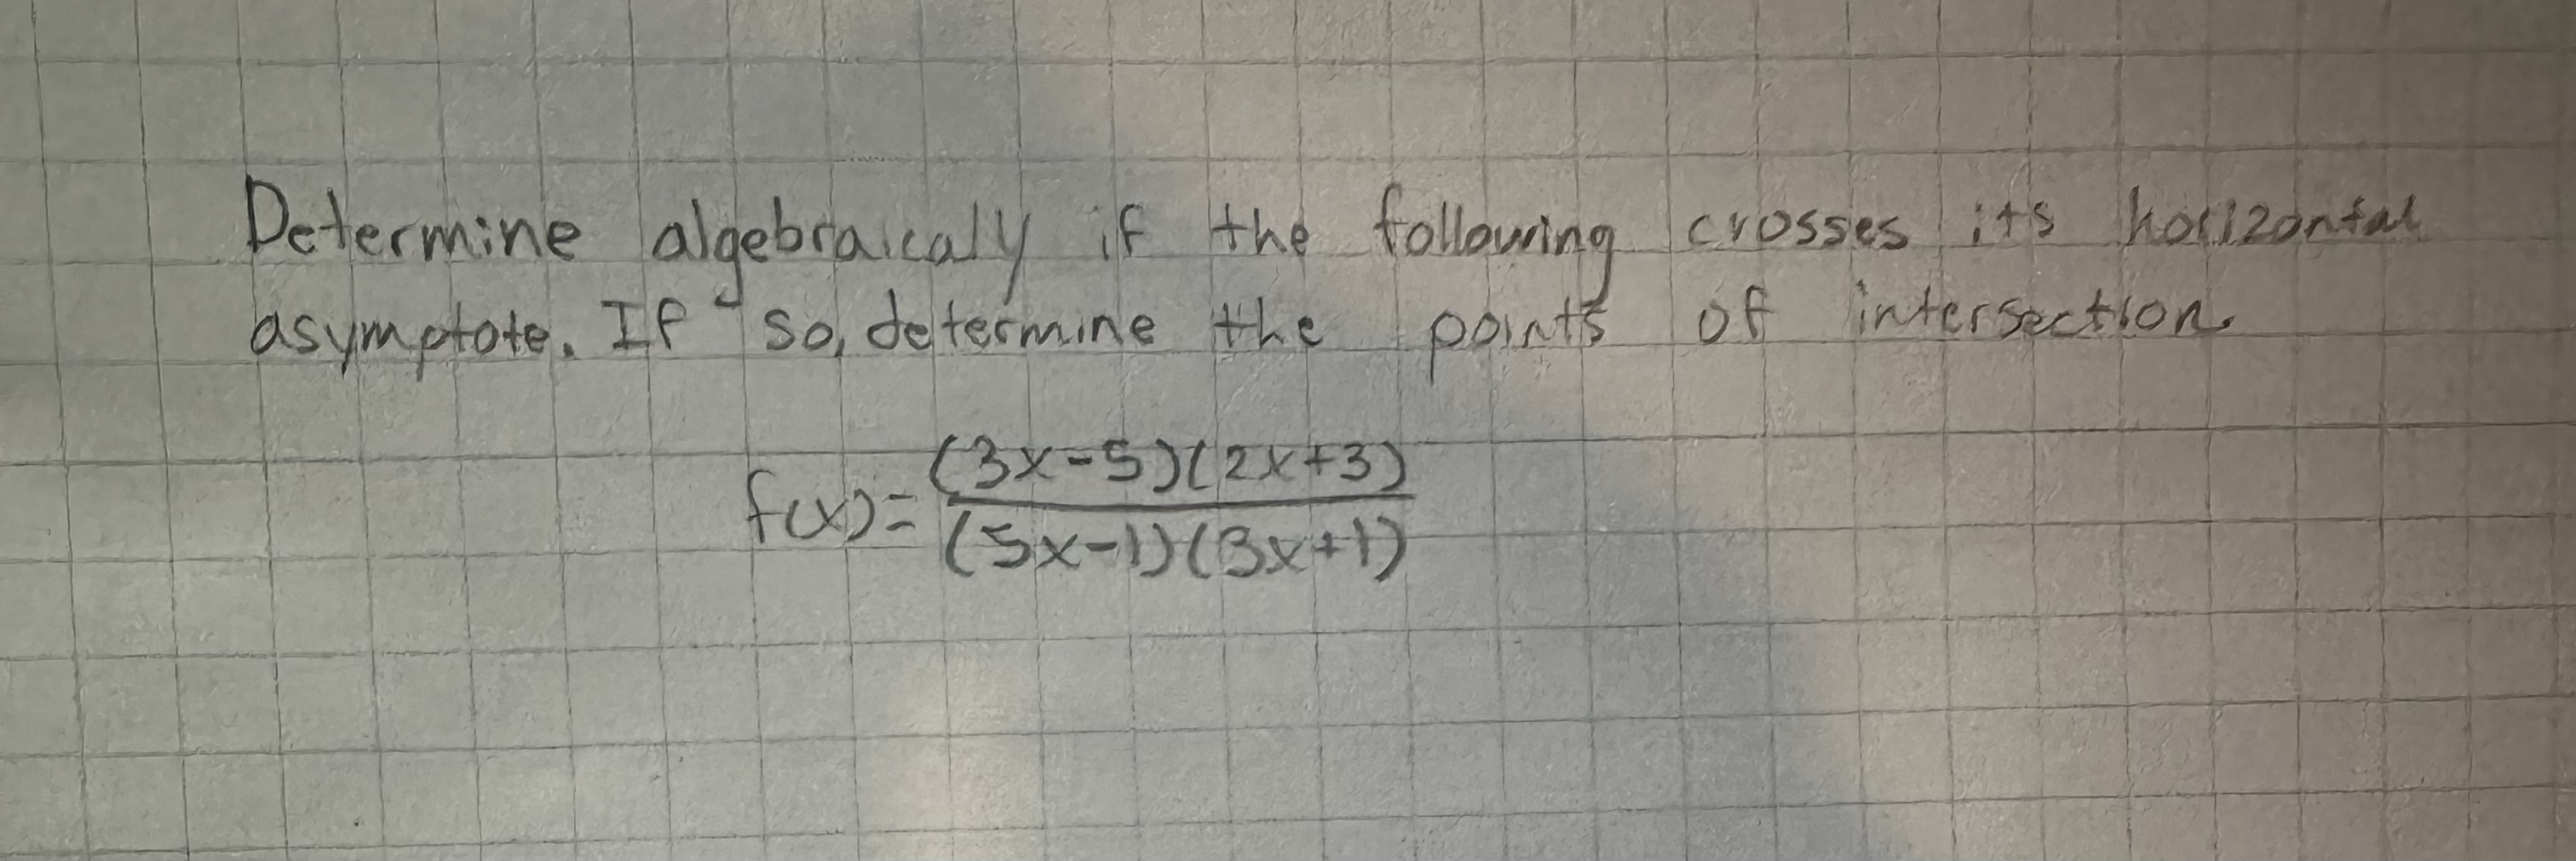 Determine algebraicaly if the following crosses its horizontal
asymptote. If so, determine the points of intersection.
f(x)= (3x-5)(2x+3)
(5x-1)(3x+1)